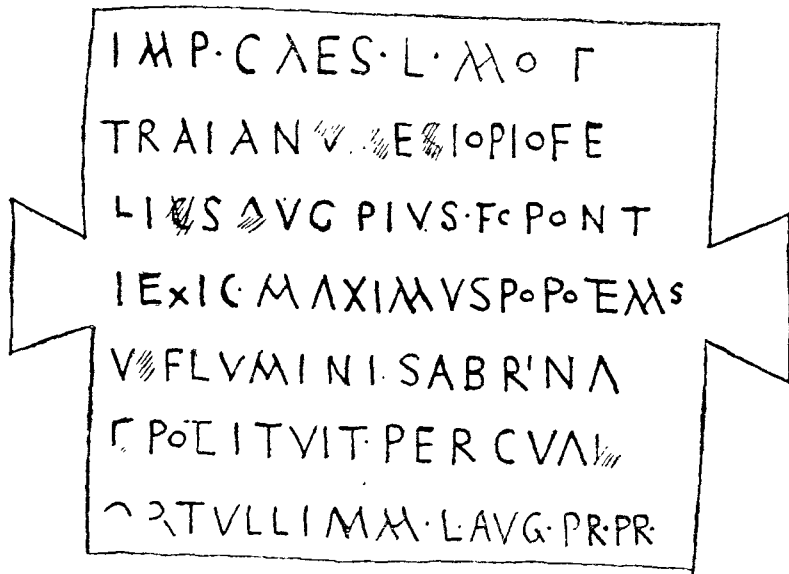 IMP·CAES·L·MO
TRAIANV IOPIOFE
LICS AVG PIVS·Fc PONT
IExIC·MAXIMVSPoPoTEMS
FLVMINI·SABRINA
ITVIT·PERCVAL
RTVLLIMM·L·AVG·PR·PR·